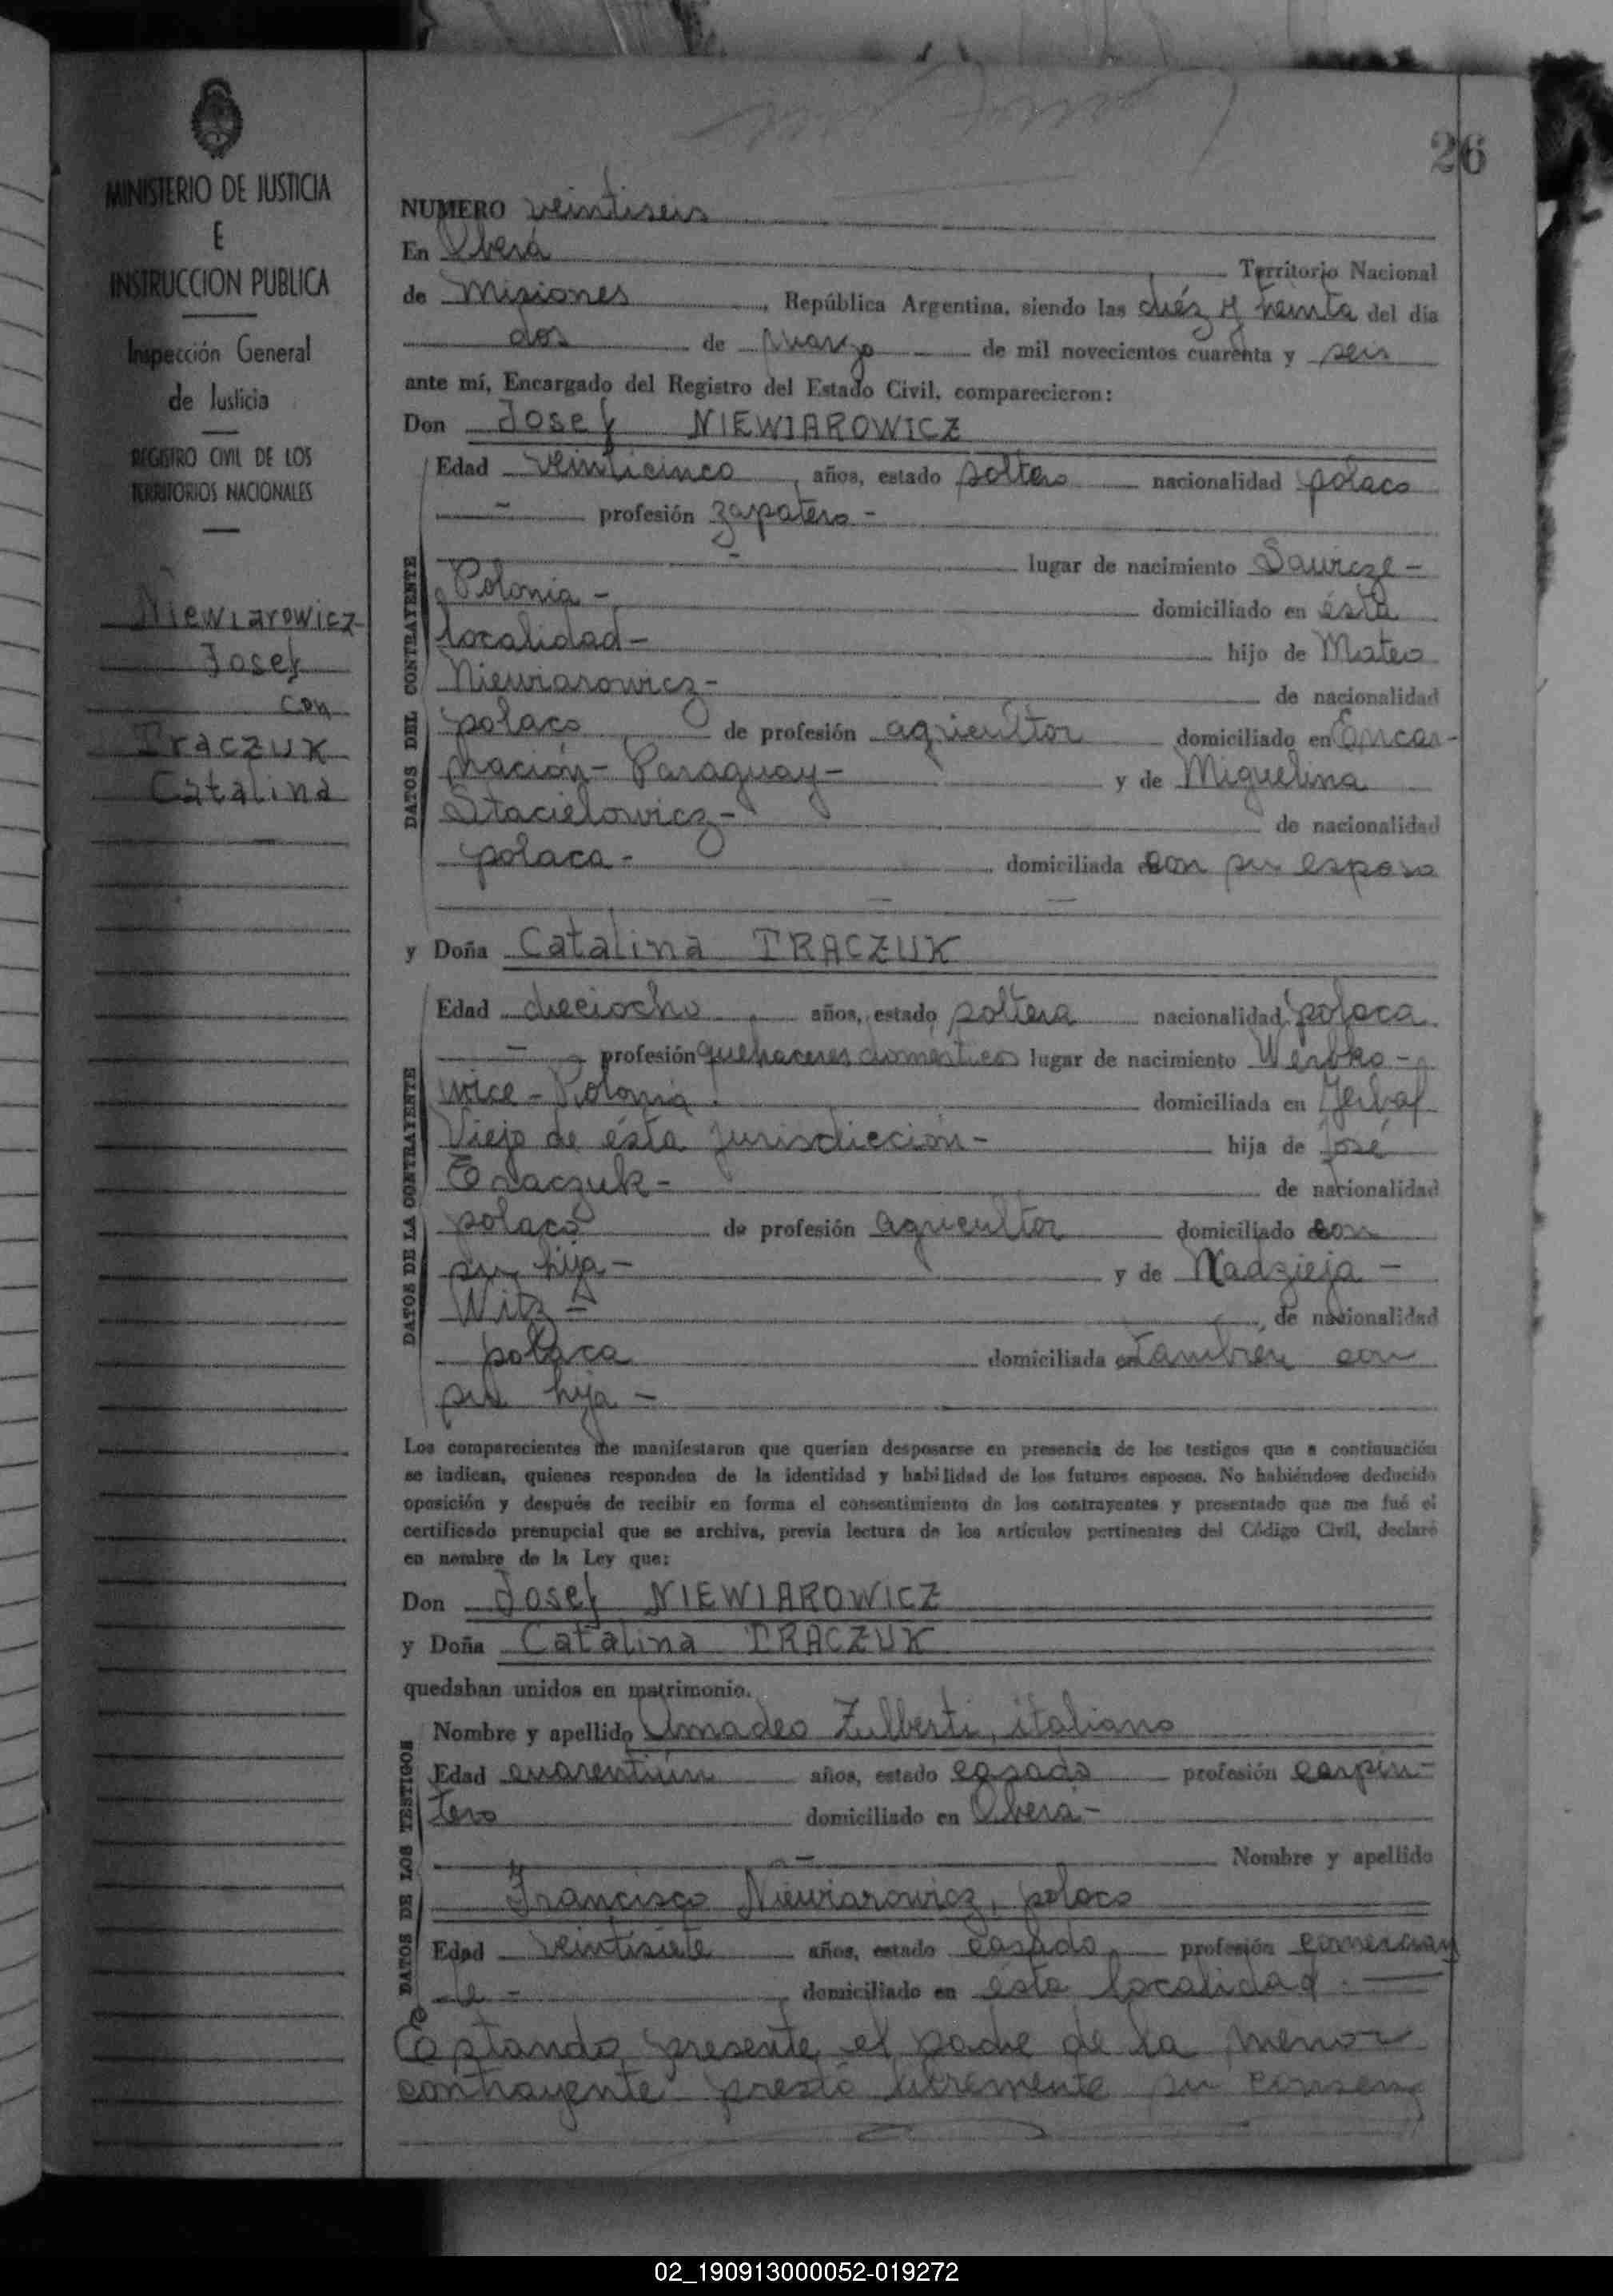 26
MINISTERIO DE JUSTICIA
E
INSTRUCCION PUBLICA
Inspección General
de Justicia
REGISTRO CIVIL DE LOS
TERRITORIOS NACIONALES
Niewiarowicz
Josef
con
Traczuk
Catalina
NUMERO veintiseis
En Oberá Territorio Nacional
de Misiones, República Argentina, siendo las diéz y treinta del día
dos de marzo de mil novecientos cuarenta y seis
ante mí, Encargado del Registro del Estado Civil, comparecieron:
Don Josef NIEWIAROWICZ
DATOS DEL CONTRAYENTE
Edad veinticinco, años, estado soltero nacionalidad polaco
- profesión zapatero -
- lugar de nacimiento Sawicze -
Polonia - domiciliado en ésta
localidad - hijo de Mateo
Niewiarowicz - de nacionalidad
polaco de profesión agricultor domiciliado en Encar-
nación - Paraguay - y de Miguelina
Stacielowicz - de nacionalidad
polaca - domiciliada con su esposo
y Doña Catalina TRACZUK
DATOS DE LA CONTRAYENTE
Edad dieciocho, años, estado soltera nacionalidad polaca
- profesión quehaceres domésticos lugar de nacimiento Werbko-
wice - Polonia. domiciliada en Yerbal
Viejo de ésta jurisdicción - hija de José
Traczuk - de nacionalidad
polaco de profesión agricultor domiciliado con
su hija - y de Nadzieja -
Witz - de nacionalidad
polaca domiciliada en también con
su hija -
Los comparecientes me manifestaron que querían desposarse en presencia de los testigos que a continuación
se indican, quienes responden de la identidad y habilidad de los futuros esposos. No habiéndose deducido
oposición y después de recibir en forma el consentimiento de los contrayentes y presentado que me fué el
certificado prenupcial que se archiva, previa lectura de los artículos pertinentes del Código Civil, declaré
en nombre de la Ley que:
Don Josef NIEWIAROWICZ
y Doña Catalina TRACZUK
quedaban unidos en matrimonio.
DATOS DE LOS TESTIGOS
Nombre y apellido Amadeo Zulberti, italiano
Edad cuarentiún años, estado casado profesión carpin-
tero domiciliado en Oberá -
y - Nombre y apellido
Francisco Niewiarowicz, polaco
Edad veintisiete años, estado casado, profesión comercian
te - domiciliado en ésta localidad. -
Estando presente el padre de la menor
contrayente prestó libremente su consen
02_190913000052-019272